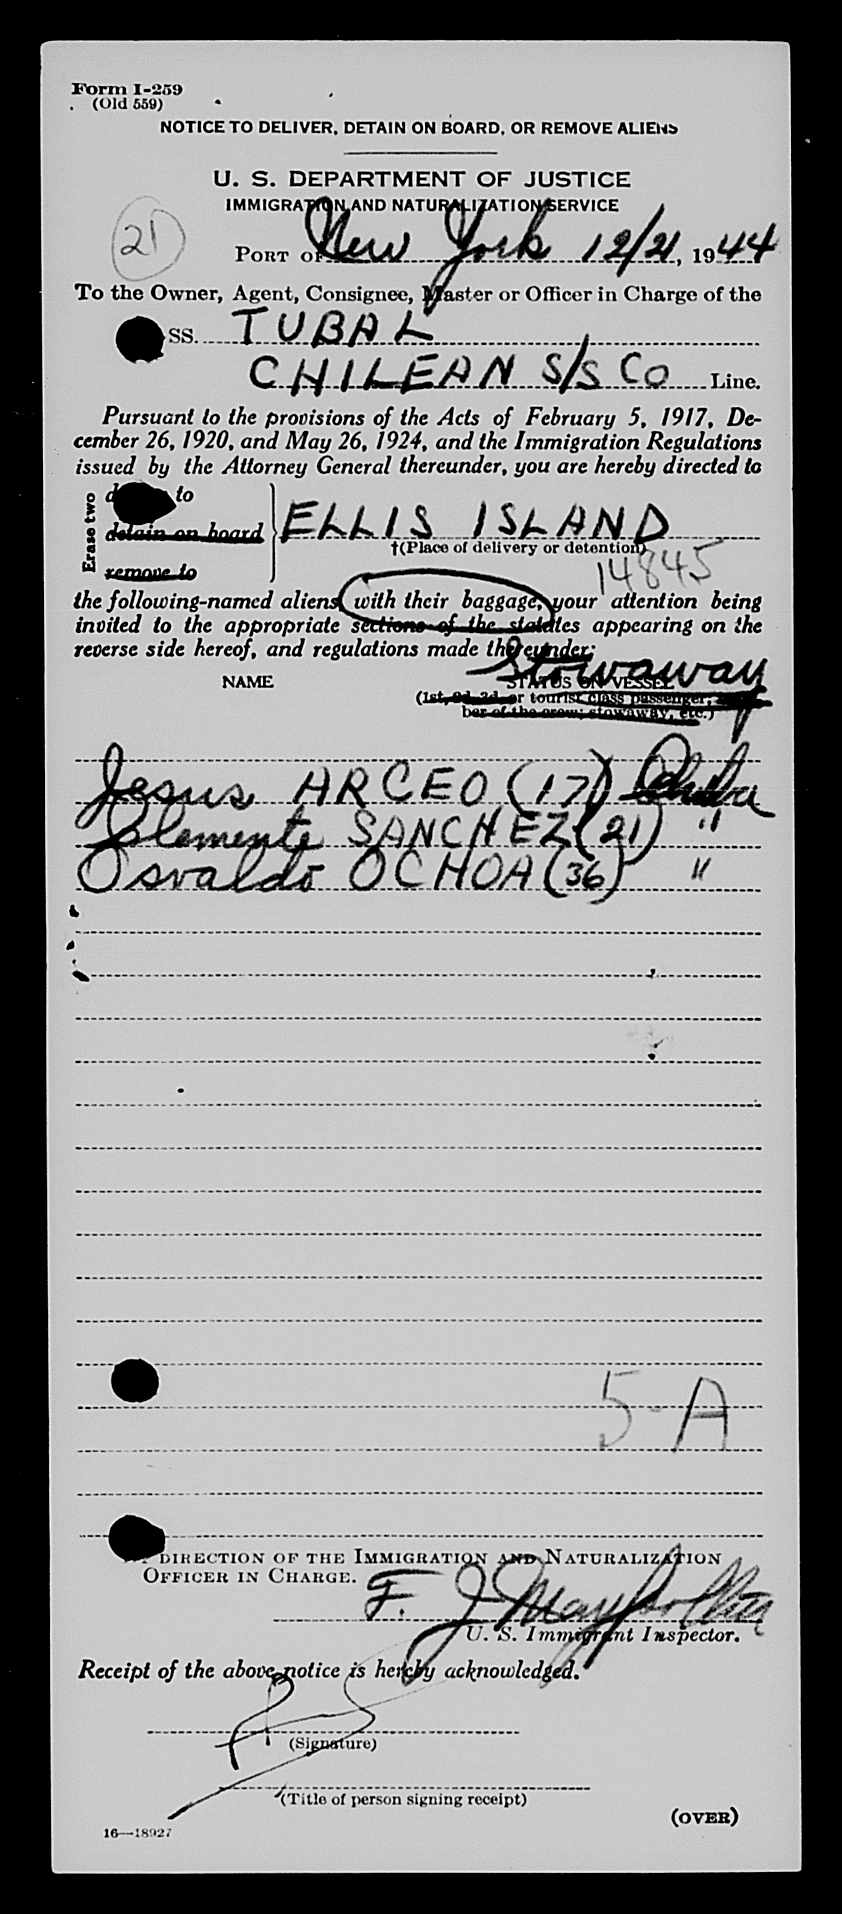 Form I-259
(Old 559)
NOTICE TO DELIVER, DETAIN ON BOARD, OR REMOVE ALIENS
U. S. DEPARTMENT OF JUSTICE
IMMIGRATION AND NATURALIZATION SERVICE
21
PORT OF New York 12/21, 1944
To the Owner, Agent, Consignee, Master or Officer in Charge of the
SS. TUBAL
CHILEAN S/S CO Line.
Pursuant to the provisions of the Acts of February 5, 1917, De-
cember 26, 1920, and May 26, 1924, and the Immigration Regulations
issued by the Attorney General thereunder, you are hereby directed to
Erase two
to
detain on board
remove to
ELLIS ISLAND
†(Place of delivery or detention)
14845
the following-named aliens with their baggage, your attention being
invited to the appropriate sections of the statutes appearing on the
reverse side hereof, and regulations made thereunder:
Stowaway
NAME STATUS ON VESSEL
(1st, 2d, 3d, or tourist class passenger;
ber of the crew; stowaway, etc.)
Jesus ARCEO (17)
Clemente SANCHEZ (21) "
Osvaldo OCHOA (36) "
5-A
DIRECTION OF THE IMMIGRATION AND NATURALIZATION
OFFICER IN CHARGE.
F. J.
U. S. Immigrant Inspector.
Receipt of the above notice is hereby acknowledged.
(Signature)
(Title of person signing receipt)
(OVER)
16—18927